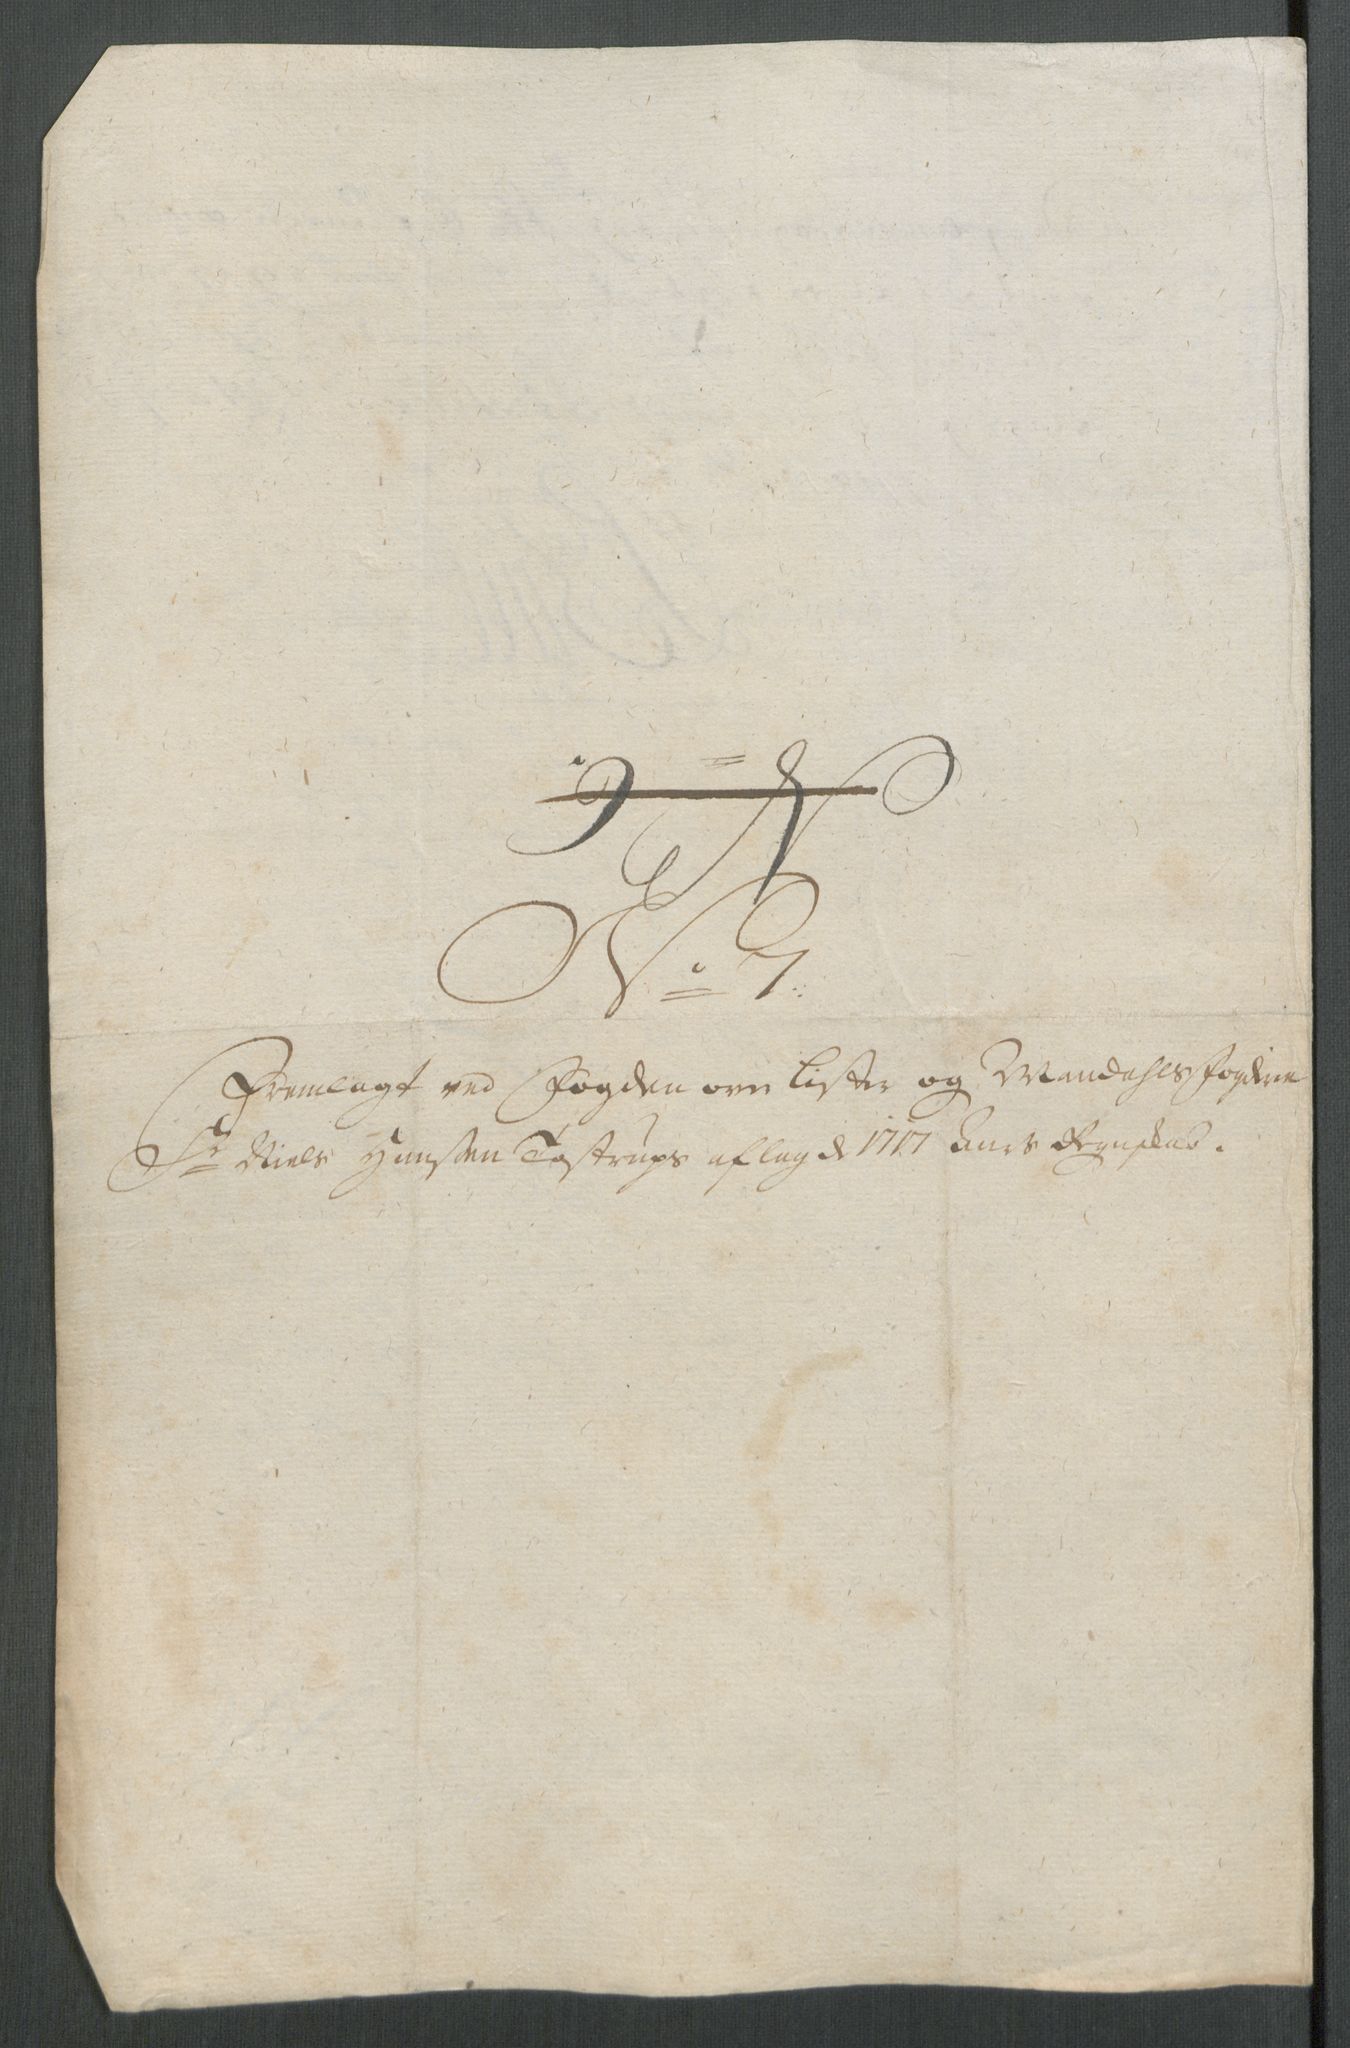 No 7.
Fremlagt ved Fogden over Lister og Mandahls fogderie
Sr Niels Hansen Tostrups aflagde 1717 Aars Regnskab.